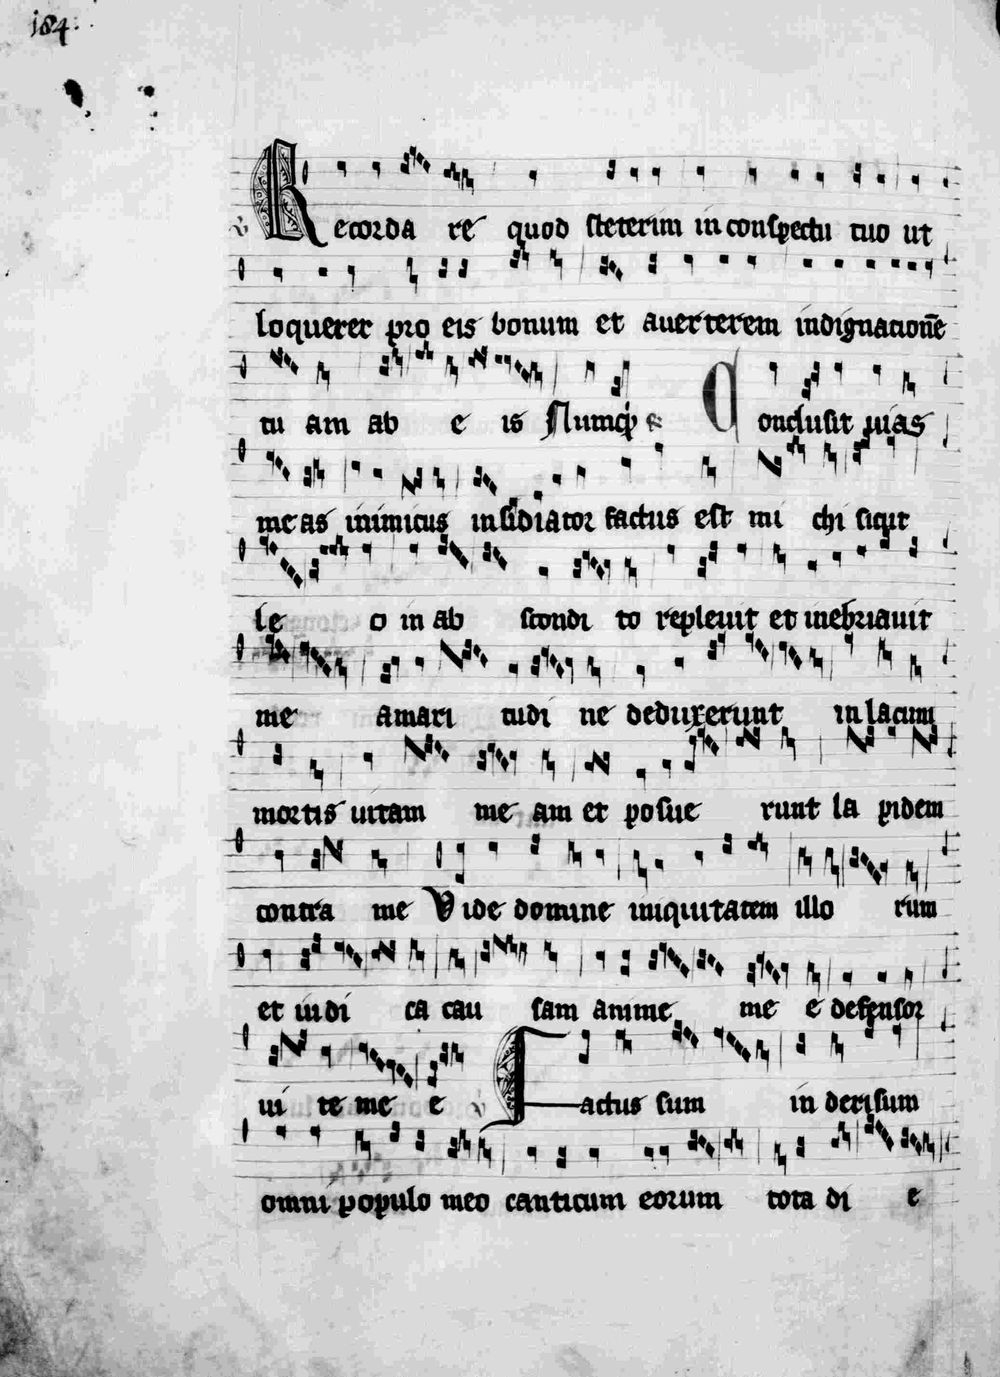 184.
Recorda re quod steterim in conspectu tuo ut
loquerer pro eis bonum et auerterem indignationē
tu am ab e is Numqͥd Conclusit uias
me as inimicus insidiator factus est mi chi sicut
le o in ab scondi to repleuit et inebriauit
me amari tudi ne deduxerunt in lacum
mortis uitam me am et posue runt la pidem
contra me Vide domine iniquitatem illo rum
et iudi ca cau sam anime me e defensor
ui te me e Factus sum in derisum
omni populo meo canticum eorum tota di e